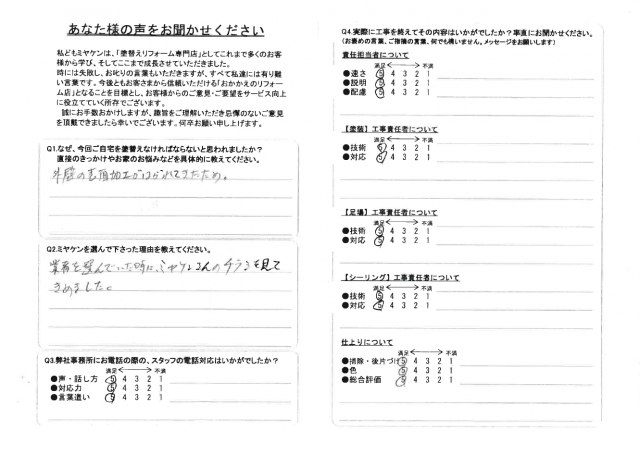 あなた様の声をお聞かせください
私どもミヤケンは、「塗替えリフォーム専門店」としてこれまで多くのお客
様から学び、そしてここまで成長させていただきました。
時には失敗し、お叱りの言葉もいただきますが、すべて私達には有り難
い言葉です。今後ともお客さまから信頼いただける「おかかえのリフォー
ム店」となることを目標とし、お客様からのご意見・ご要望をサービス向上
に役立てていく所存でございます。
誠にお手数おかけしますが、趣旨をご理解いただき忌憚のないご意見
を頂戴できましたら幸いでございます。何卒お願い申し上げます。
Q1.なぜ、今回ご自宅を塗替えなければならないと思われましたか？
直接のきっかけやお家のお悩みなどを具体的に教えてください。
外壁の表面加工がはがれてきたため。
Q2.ミヤケンを選んで下さった理由を教えてください。
業者を選んでいた時に、ミヤケンさんのチラシを見て
きめました。
Q3.弊社事務所にお電話の際の、スタッフの電話対応はいかがでしたか？
満足 不満
●声・話し方 5 4 3 2 1
●対応力 5 4 3 2 1
●言葉遣い 5 4 3 2 1
Q4.実際に工事を終えてその内容はいかがでしたか？率直にお聞かせください。
(お褒めの言葉、ご指摘の言葉、何でも構いません。メッセージをお願いします)
責任担当者について
満足 不満
●速さ 5 4 3 2 1
●説明 5 4 3 2 1
●配慮 5 4 3 2 1
【塗装】工事責任者について
満足 不満
●技術 5 4 3 2 1
●対応 5 4 3 2 1
【足場】工事責任者について
満足 不満
●技術 5 4 3 2 1
●対応 5 4 3 2 1
【シーリング】工事責任者について
満足 不満
●技術 5 4 3 2 1
●対応 5 4 3 2 1
仕上りについて
満足 不満
●掃除・後片づけ 5 4 3 2 1
●色 5 4 3 2 1
●総合評価 5 4 3 2 1